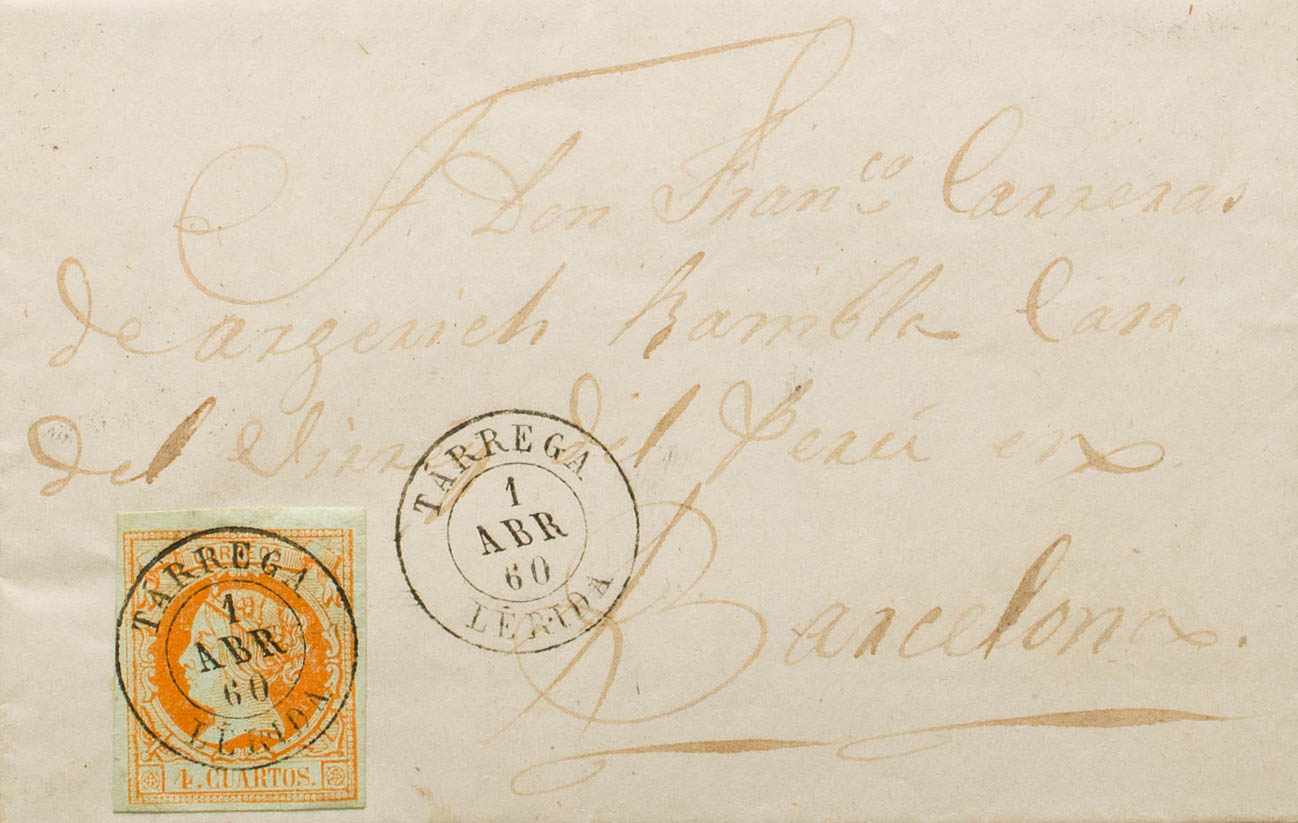 S. Don Fran.co Carreras
de argerich Rambla Casa
del Virrey del Perú en
Barcelona.
TÁRREGA
1
ABR
60
LÉRIDA
CORREOS
TÁRREGA
1
ABR
60
LÉRIDA
4. CUARTOS.